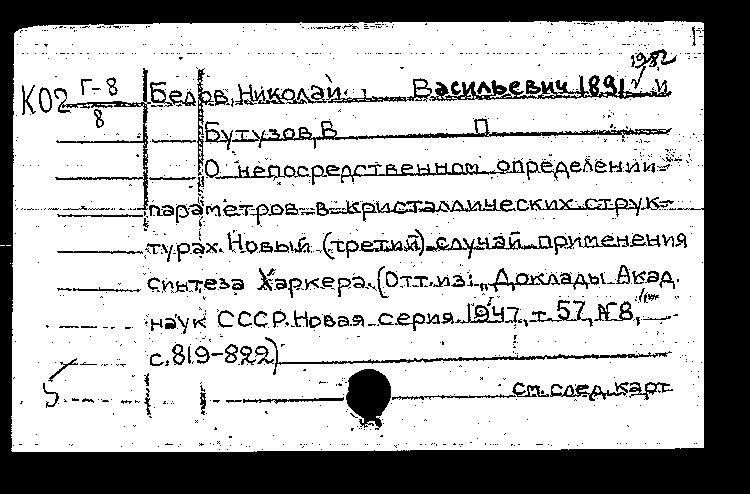 1982
К02 Г-8/8 Белов, Николай Васильевич 1891 и
Бутузов, В П
О непосредственном определении
параметров в кристаллических струк-
турах. Новый (третий) случай применения
синтеза Харкера. (Отт. из: „Доклады Акад.
наук СССР. Новая серия. 1947, т. 57, № 8,
с. 819-822)
см. след. карт